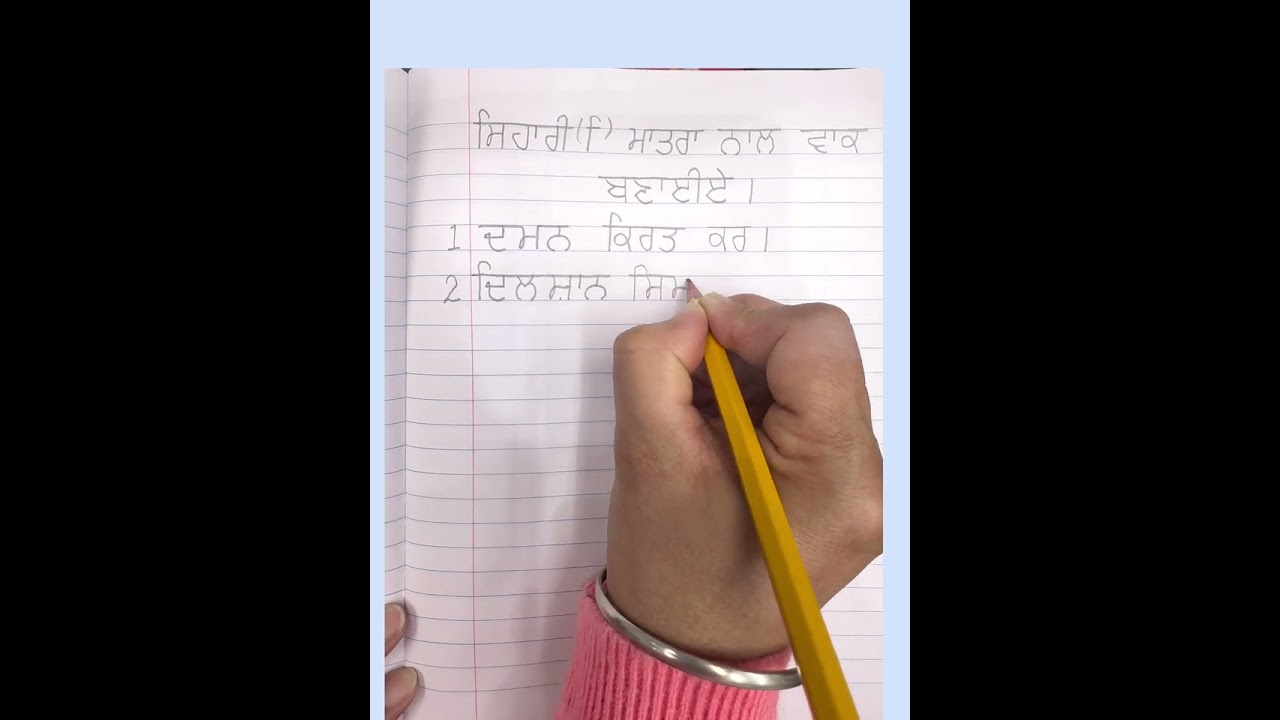 ਸਿਹਾਰੀ(ਿ) ਮਾਤਰਾ ਨਾਲ ਵਾਕ
ਬਣਾਈਏ ।
1 ਦਮਨ ਕਿਰਤ ਕਰ ।
2 ਦਿਲਸ਼ਾਨ ਸਿਮ